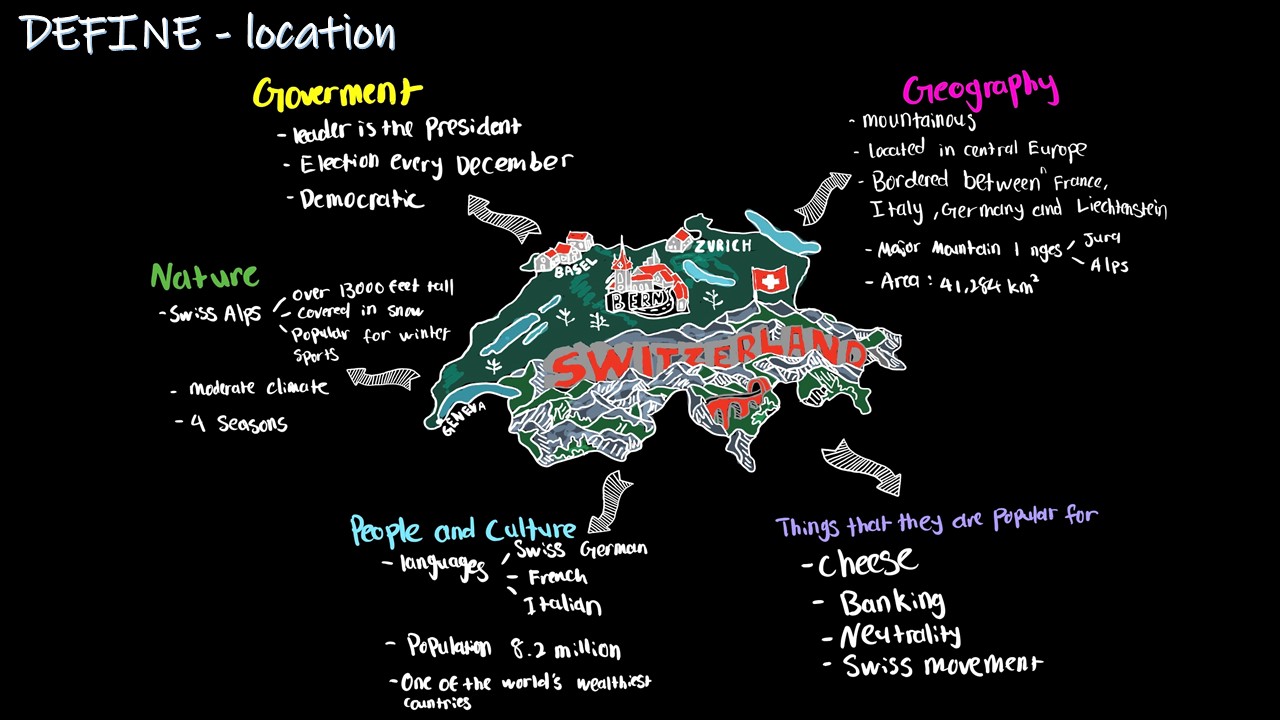 DEFINE - location
Goverment
- leader is the President
- Election every December
- Democratic
Geography
- mountainous
- located in central Europe
- Bordered between" France,
Italy, Germany and Liechtenstein
- Major Mountain nges - Jura
- Alps
- Area : 41,284 km²
Nature
- Swiss Alps - over 13000 feet tall
- covered in snow
- Popular for winter
sports
- moderate climate
- 4 Seasons
BASEL
ZURICH
BERN
SWITZERLAND
GENEVA
People and Culture
- languages - Swiss German
- French
- Italian
- Population 8.2 million
- One of the world's wealthiest
countries
Things that they are popular for
- Cheese
- Banking
- Neutrality
- Swiss movement